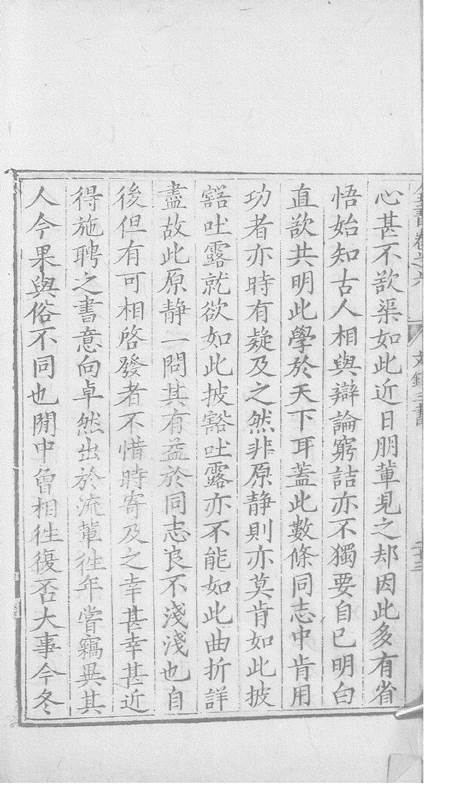 心甚不欲渠如此近日朋輩見之却因此多有省
悟始知古人相與辯論窮詰亦不獨要自己明白
直欲共明此學於天下耳蓋此數條同志中肯用
功者亦時有疑及之然非原静則亦莫肯如此披
豁吐露就欲如此披豁吐露亦不能如此曲折詳
盡故此原静一問其有益於同志良不淺淺也自
後但有可相啓發者不惜時寄及之幸甚幸甚近
得施聘之書意向卓然出於流輩徃年嘗竊異其
人今果與俗不同也閒中曾相徃復否大事今冬